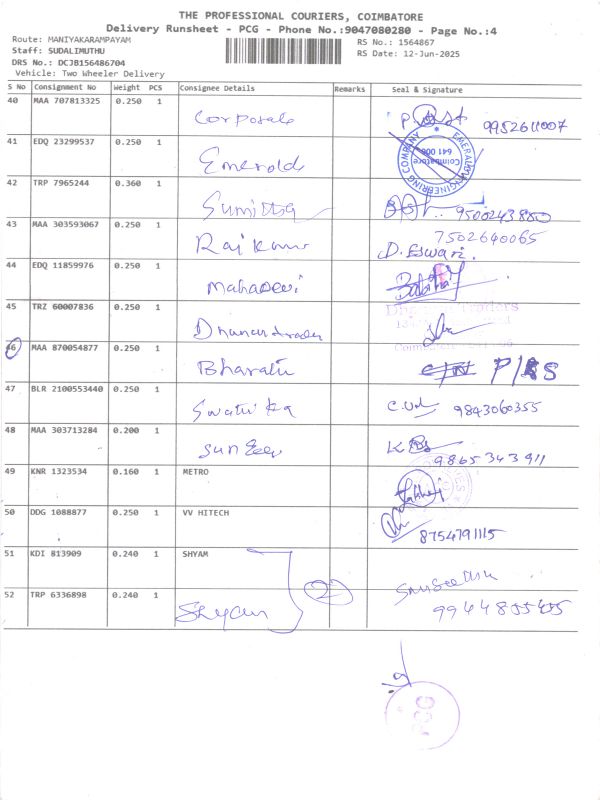 THE PROFESSIONAL COURIERS, COIMBATORE
Delivery Runsheet - PCG - Phone No.:9047080280 - Page No.:4
Route: MANIYAKARAMPAYAM RS No.: 1564867
Staff: SUDALIMUTHU RS Date: 12-Jun-2025
DRS No.: DCJB156486704
Vehicle: Two Wheeler Delivery
S No Consignment No Weight PCS Consignee Details Remarks Seal & Signature
40 MAA 707813325 0.250 1 Corporate 9952611007
41 EDQ 23299537 0.250 1 Emerald EMERALD ENGINEERING COMPANY Coimbatore 641 006
42 TRP 7965244 0.360 1 Sumithra 9500243880
43 MAA 303593067 0.250 1 Raj Kumar 7502640065
D. Eswari.
44 EDQ 11859976 0.250 1 Mahadevi
45 TRZ 60007836 0.250 1
46 MAA 870054877 0.250 1 Bharath P/RS
47 BLR 2100553440 0.250 1 Swathika 9843060355
48 MAA 303713284 0.200 1 9865343911
49 KNR 1323534 0.160 1 METRO
50 DDG 1088877 0.250 1 VV HITECH 8754791115
51 KDI 813909 0.240 1 SHYAM
52 TRP 6336898 0.240 1 Shyam 2 9944855455
PCG